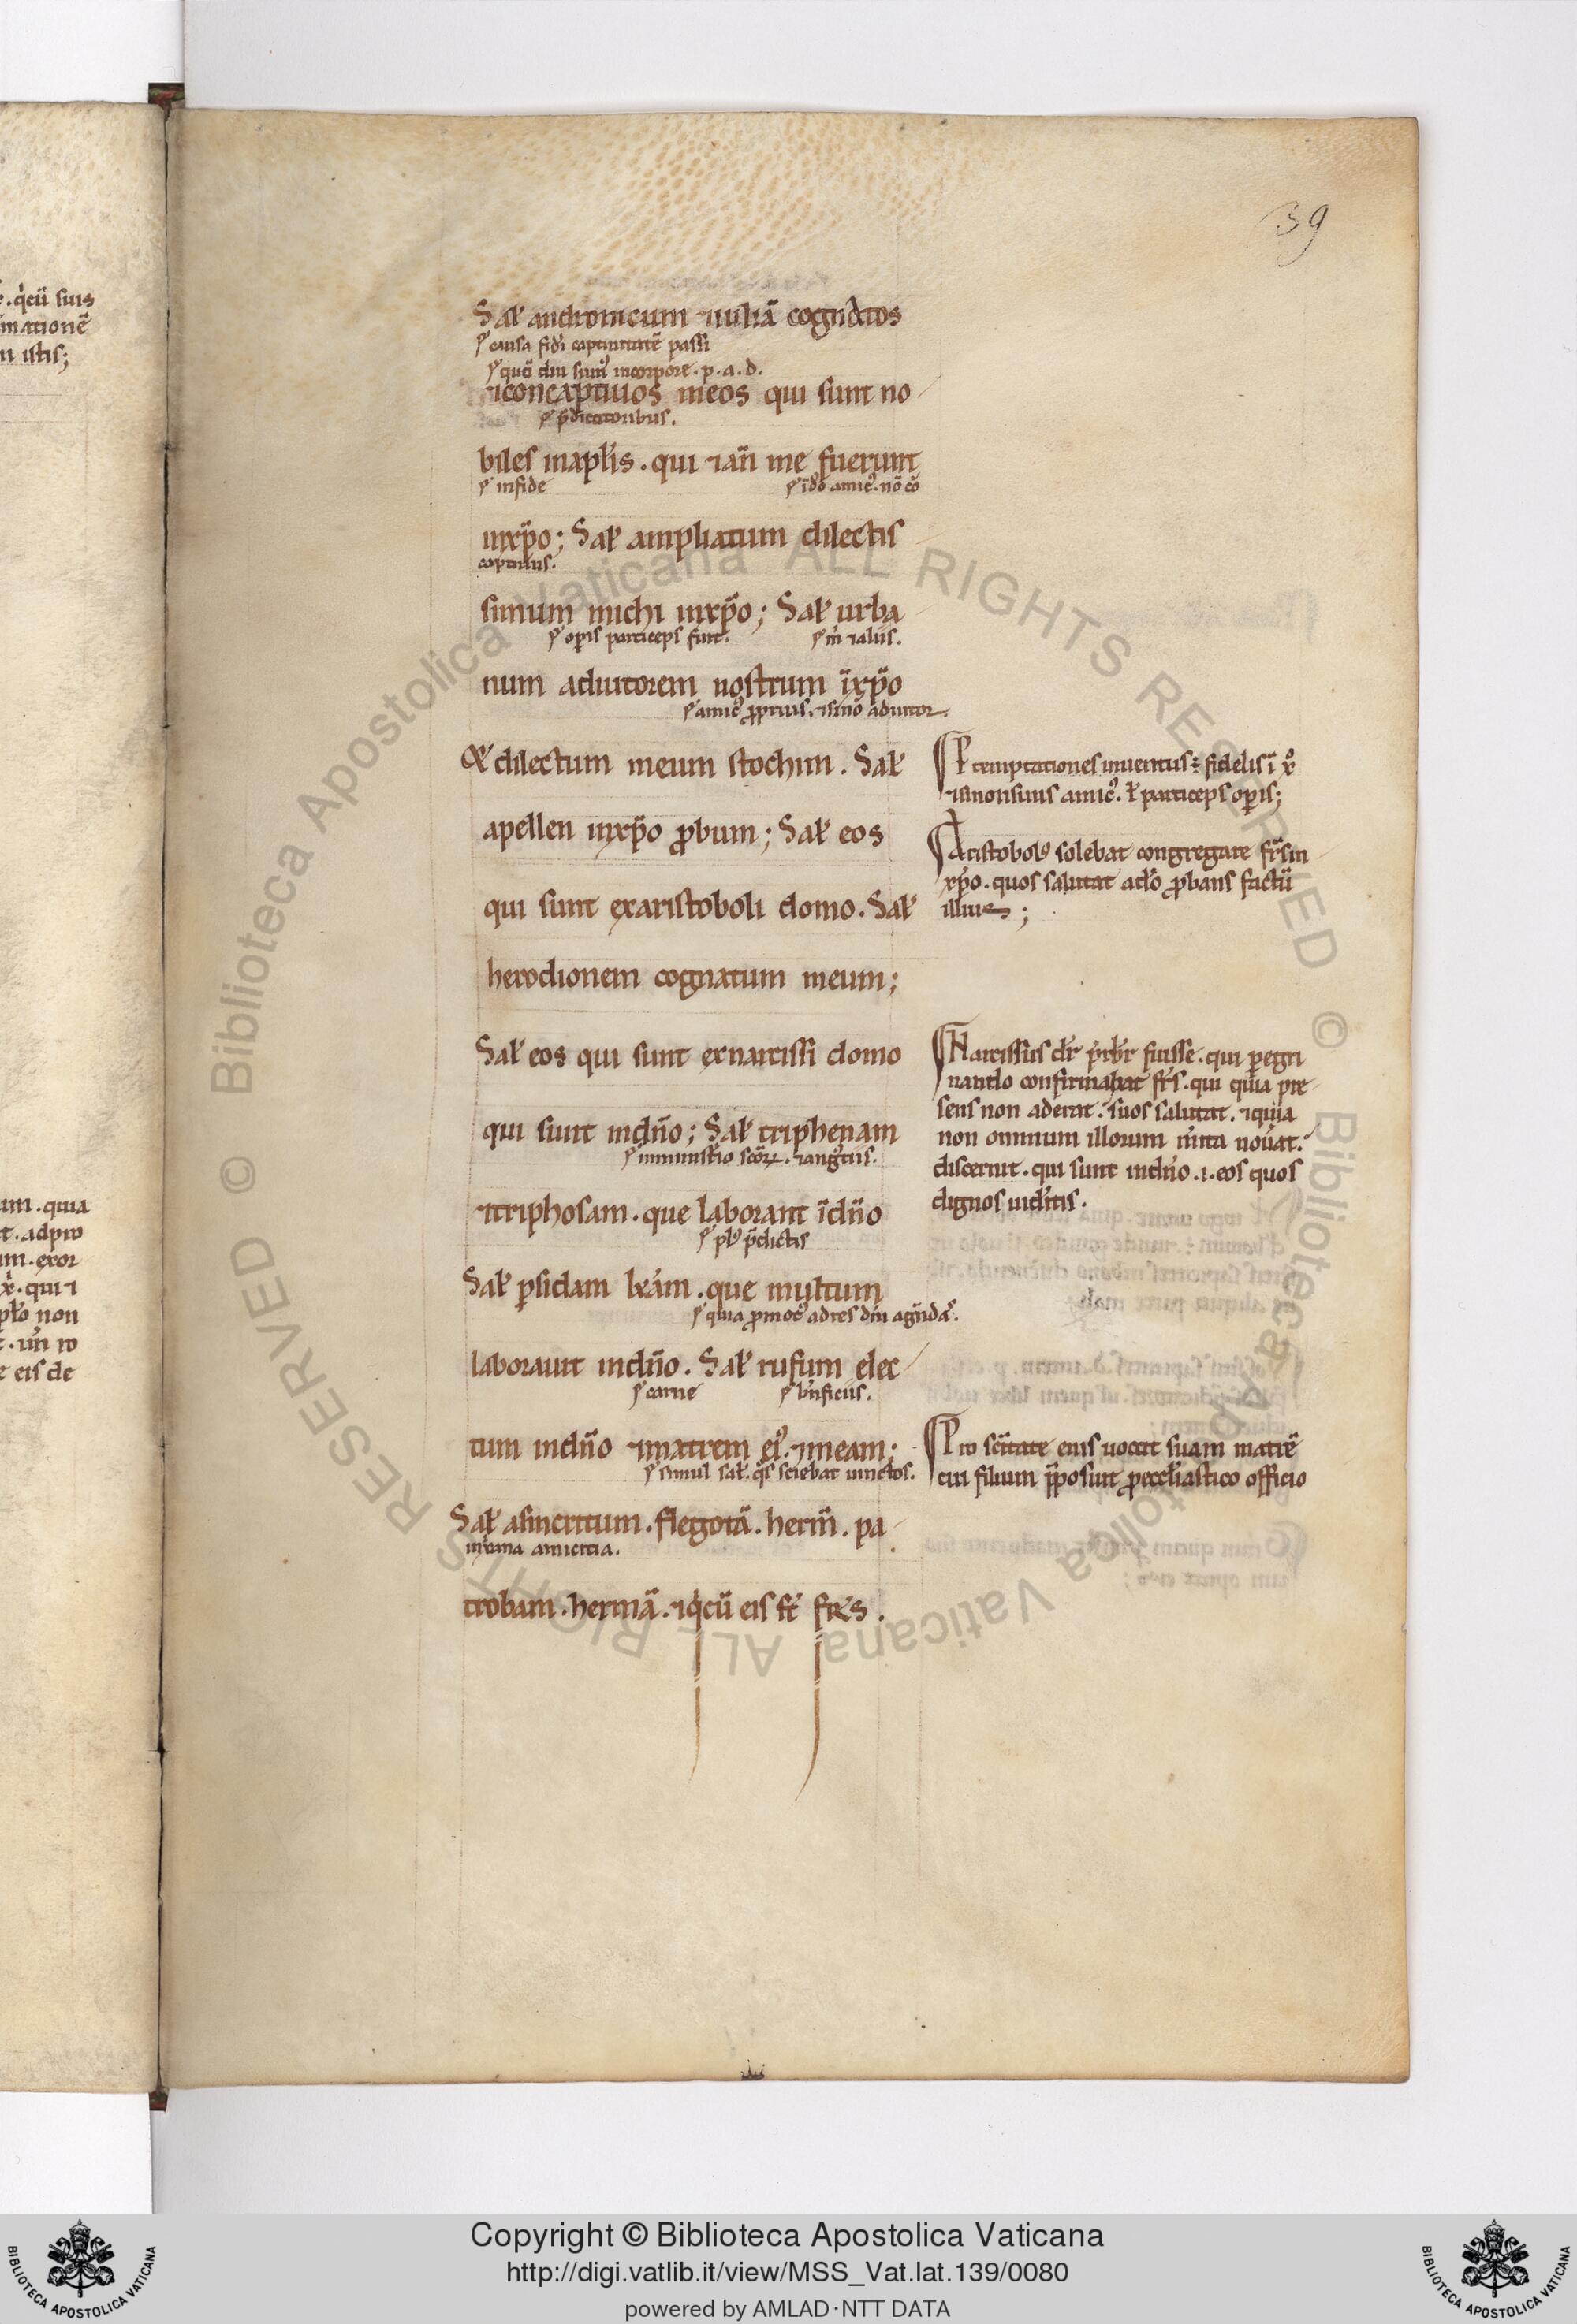 39
Salꝰ andronicum ⁊ iuliā cognatos
ſ causa fidei captiuitatē passi
ſ quā diu sumꝰ in corpore . p . a . d .
⁊ concaptiuos meos qui sunt no
ſ p̄dicatoribus .
biles in apl̄is . qui ⁊ an̄ me fuerunt
ſ in fide ſ id̄o amicꝰ . nō cō
in xp̄o ; Salꝰ ampliatum dilectis
captiuus .
simum michi in xp̄o ; Salꝰ urba
ſ opis particeps fuit . ſ m̄ ⁊ aliis .
num adiutorem nostrum ī xp̄o
ſ amicꝰ ꝓprius . ⁊ si nō adiutor .
⁊ dilectum meum stochim . Salꝰ
apellen in xp̄o ꝓbum ; Salꝰ eos
qui sunt ex aristoboli domo . Salꝰ
herodionem cognatum meum ;
Salꝰ eos qui sunt ex narcissi domo
qui sunt in dn̄o ; Salꝰ triphenam
ſ in ministīo scōꝝ . ⁊ angustiis .
⁊ triphosam . que laborant ī dn̄o
ſ plꝰ p̄dictis
Salꝰ ꝑsidam kārām . que multum
ſ quia ꝓmotꝰ ad res diu agn̄das .
laborauit in dn̄o . Salꝰ rufum elec
ſ carne ſ bn̄ficiis .
tum in dn̄o ⁊ matrem eiꝰ . ⁊ meam ;
ſ simul salꝰ . q̄s sciebat uinctos .
Salꝰ asincritum . flegotā . herm̄ . pa
in una amicitia .
trobam . hermā . ⁊ q̇ cū eis st̄ frēs .
¶ P temptationes inuentus : fidelis ī xͦ
⁊ si non suus amicꝰ . ł particeps opis ;
¶ Aristobolꝰ solebat congregare fr̄s in
xp̄o . quos salutat apl̄o ꝓbans factū
illius ;
¶ Narcissus dr̄ prb̄r fuisse . qui pegri
nando confirmabat fr̄s . qui quia pre
sens non aderat : suos salutat . ⁊ quia
non omnium illorum m̄ita nouat :
discernit . qui sunt in dn̄o . i . eos quos
dignos uidetis .
¶ Pro scītate eius uocat suam matrē
cui filium p̄posuit ꝓ eccl̄iastico officio
. q̇ cū suis
mationē
n istis ;
um . quia
t . ad pro
um . exor
xͦ . qui ⁊
pl̄o non
e eis de
Copyright © Biblioteca Apostolica Vaticana
http://digi.vatlib.it/view/MSS_Vat.lat.139/0080
powered by AMLAD·NTT DATA
BIBLIOTECA APOSTOLICA VATICANA
BIBLIOTECA APOSTOLICA VATICANA
© Biblioteca Apostolica Vaticana ALL RIGHTS RESERVED © Biblioteca Apostolica Vaticana ALL RIGHTS RESERVED